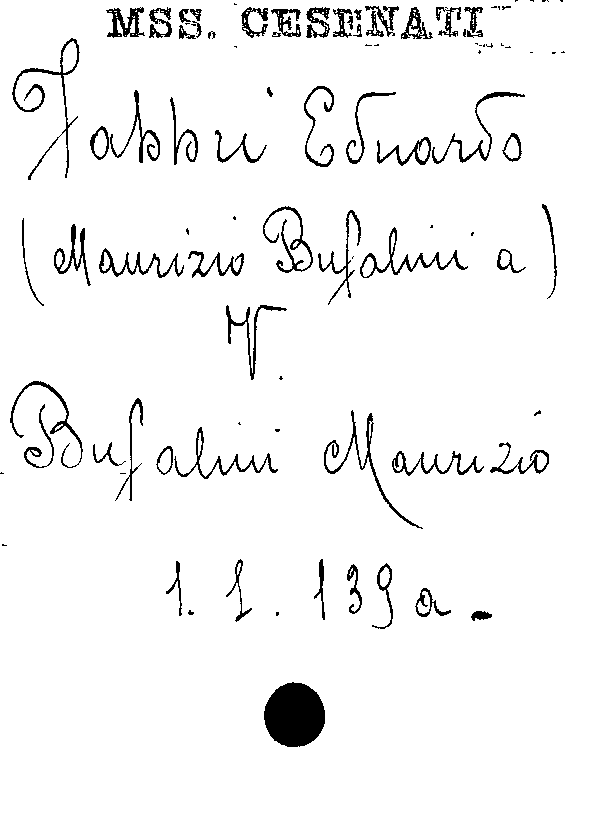 MSS. CESENATI
Fabbri Eduardo
(Maurizio Bufalini a)
V.
Bufalini Maurizio
1. 1. 139 a -